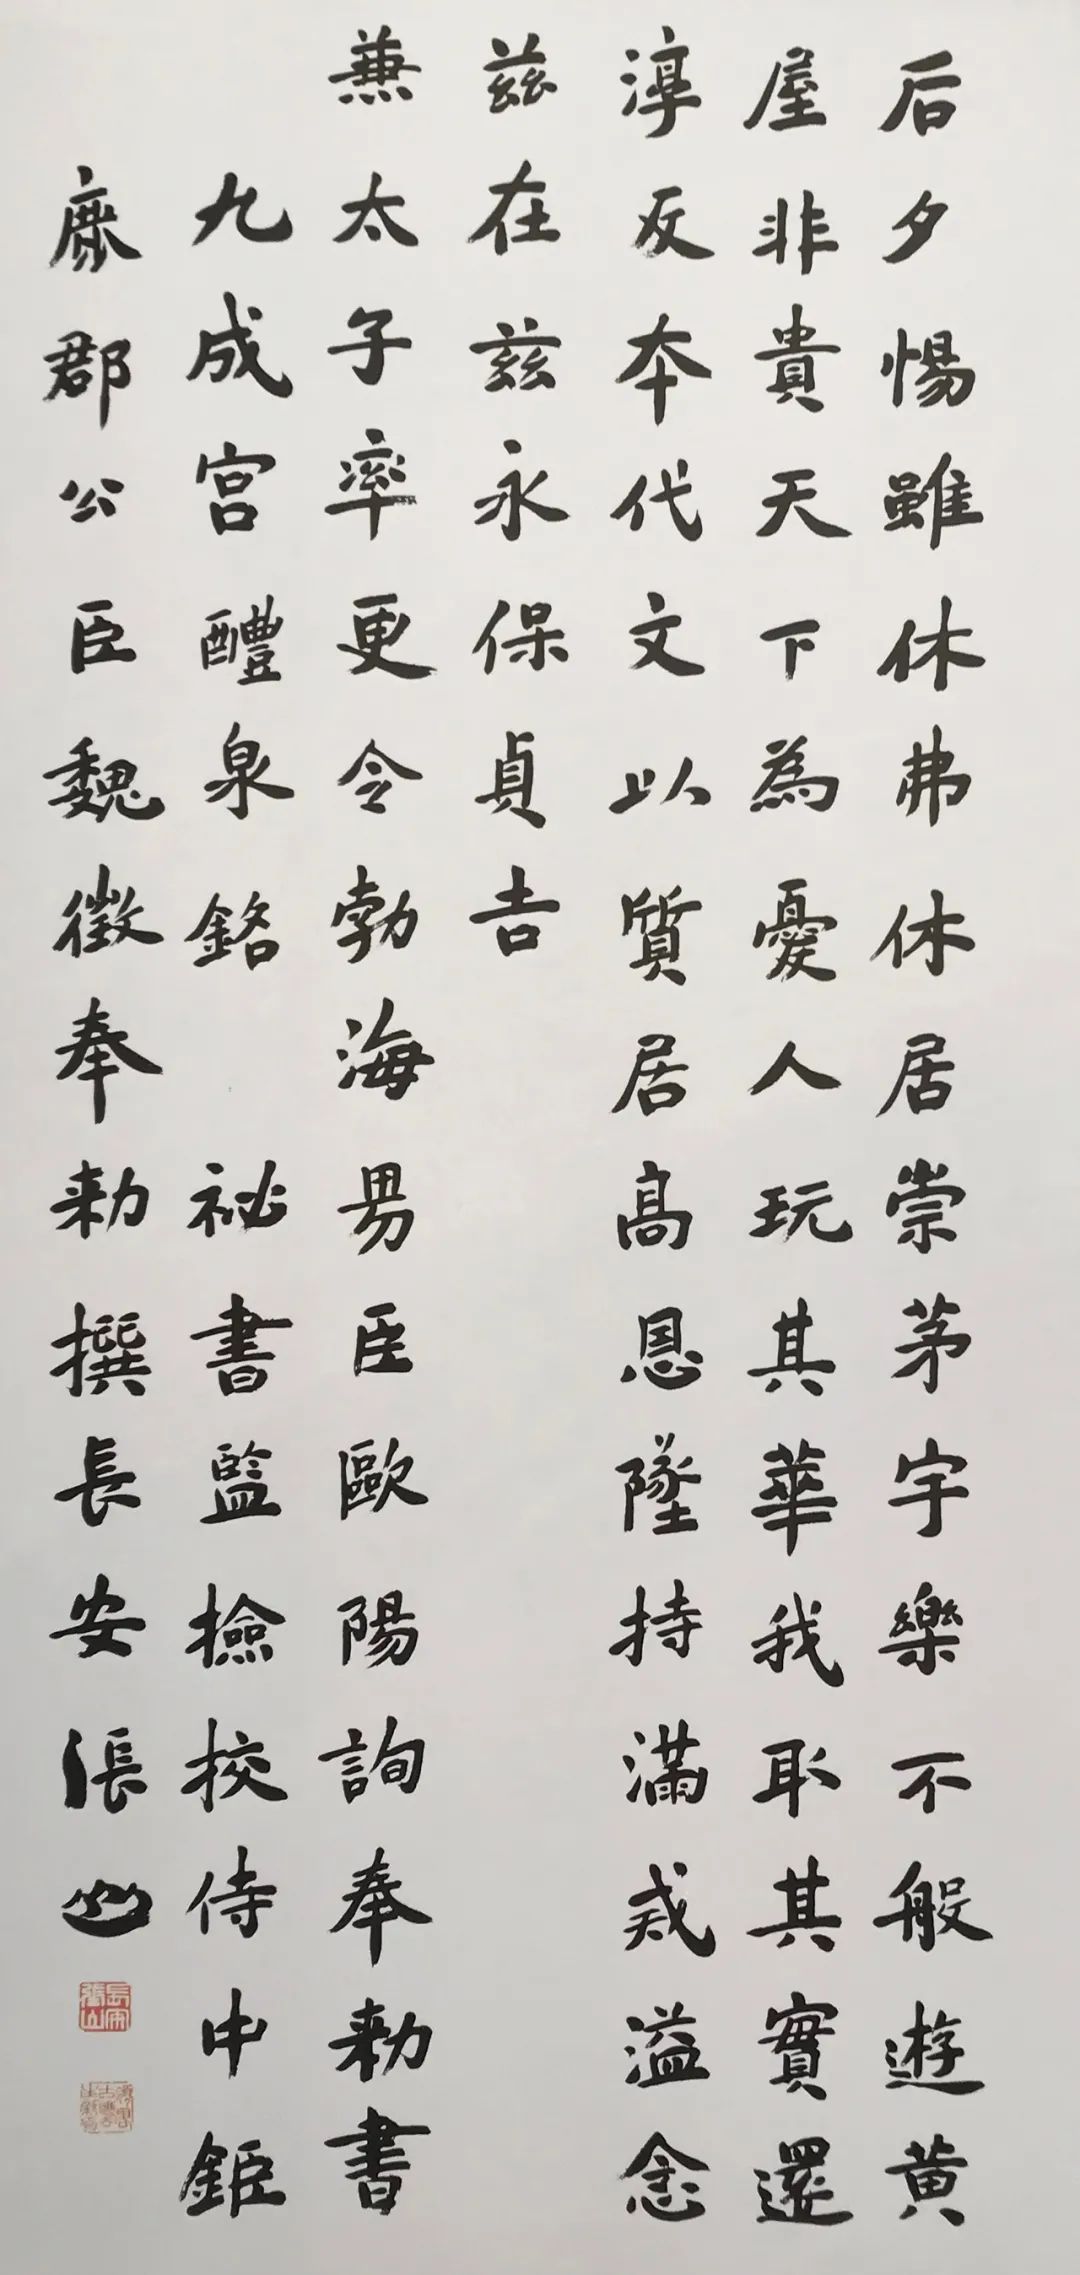 后夕惕雖休弗休居崇茅宇樂不般遊黄
屋非貴天下為憂人玩其華我取其實還
淳反夲代文以質居髙思墜持滿戒溢念
兹在兹永保貞吉
兼太子率更令勃海男臣歐陽詢奉勅書
九成宫醴泉銘 祕書監撿挍侍中鉅
鹿郡公臣魏徵奉勅撰長安張山
長安張山